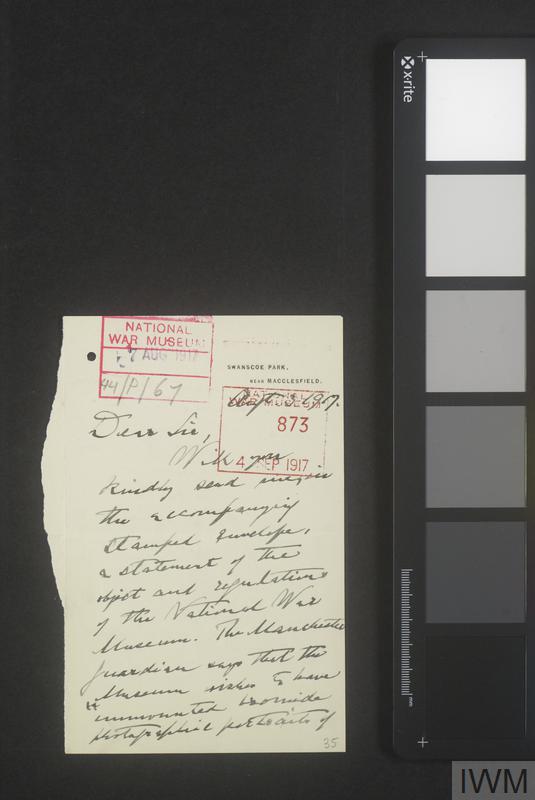 NATIONAL
WAR MUSEUM
7 AUG 1917
44/P/67
SWANSCOE PARK,
NEAR MACCLESFIELD.
Sept 3. 1917.
NATIONAL
WAR MUSEUM
873
4 SEP 1917
Dear Sir,
Will you
kindly send me, in
the accompanying
stamped envelope,
a statement of the
object and regulations
of the National War
Museum. The Manchester
Guardian says that the
Museum wishes to have
"unmounted bromide
photographic portraits of
35
x-rite
mm
IWM